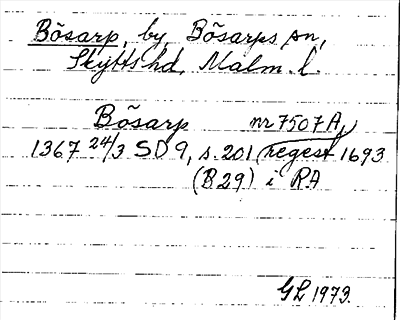 Bösarp, by, Bösarps sn,
Skytts hd, Malm. l.
Bösarp nr 7507A,
1367 24/3 SD 9, s. 201 (regest 1693
(B 29) i RA
GL 1973.